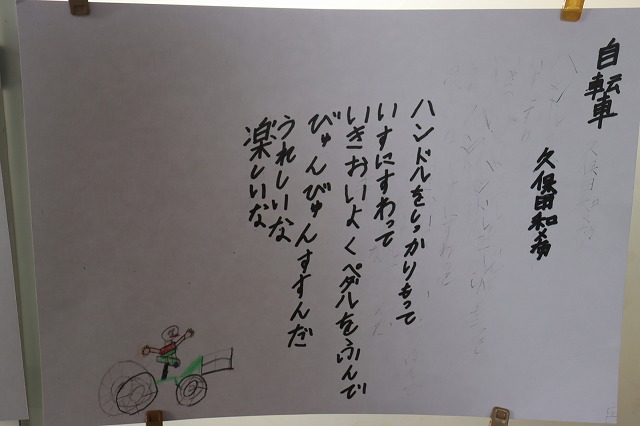 自転車
久保田和希
ハンドルをしっかりもって
いすにすわって
いきおいよくペダルをふんで
びゅんびゅんすすんだ
うれしいな
楽しいな